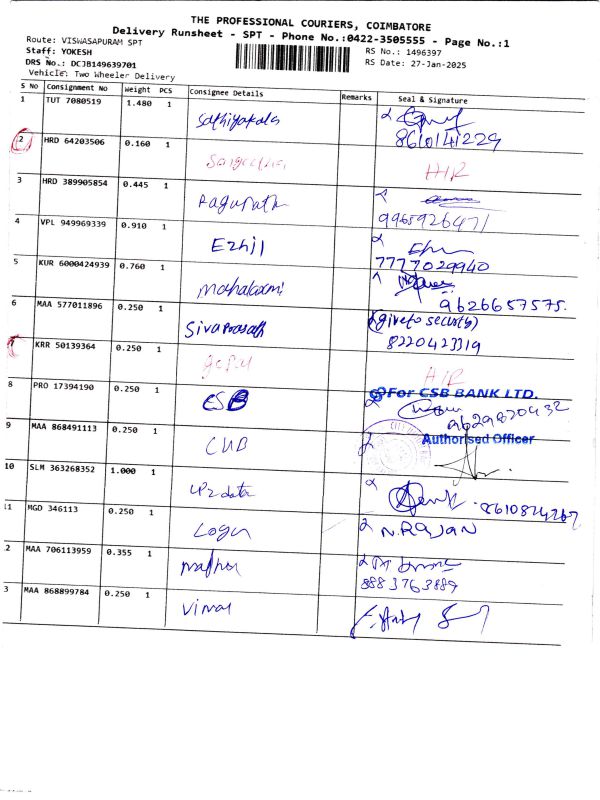 THE PROFESSIONAL COURIERS, COIMBATORE
Delivery Runsheet - SPT - Phone No.:0422-3505555 - Page No.:1
Route: VISWASAPURAM SPT
RS No.: 1496397
Staff: YOKESH
RS Date: 27-Jan-2025
DRS No.: DCJB149639701
Vehicle: Two Wheeler Delivery
S No Consignment No Weight PCS Consignee Details Remarks Seal & Signature
1 TUT 7080519 1.480 1 Sathiyakala
8610141229
2 HRD 64203506 0.160 1 H/R
3 HRD 389905854 0.445 1 Ragunath
9965926471
4 VPL 949969339 0.910 1 Ezhil
7777029940
5 KUR 6000424939 0.760 1 mahalaxmi
9626657575.
6 MAA 577011896 0.250 1 Sivaprasath give to security
8220423319
7 KRR 50139364 0.250 1 gopal H/R
8 PRO 17394190 0.250 1 CSB For CSB BANK LTD.
9629820432
9 MAA 868491113 0.250 1 CUB Authorised Officer
10 SLM 363268352 1.000 1 data
8610824267
11 MGD 346113 0.250 1 Login N.RAJAN
2 MAA 706113959 0.355 1
8883763889
3 MAA 868899784 0.250 1 vimal